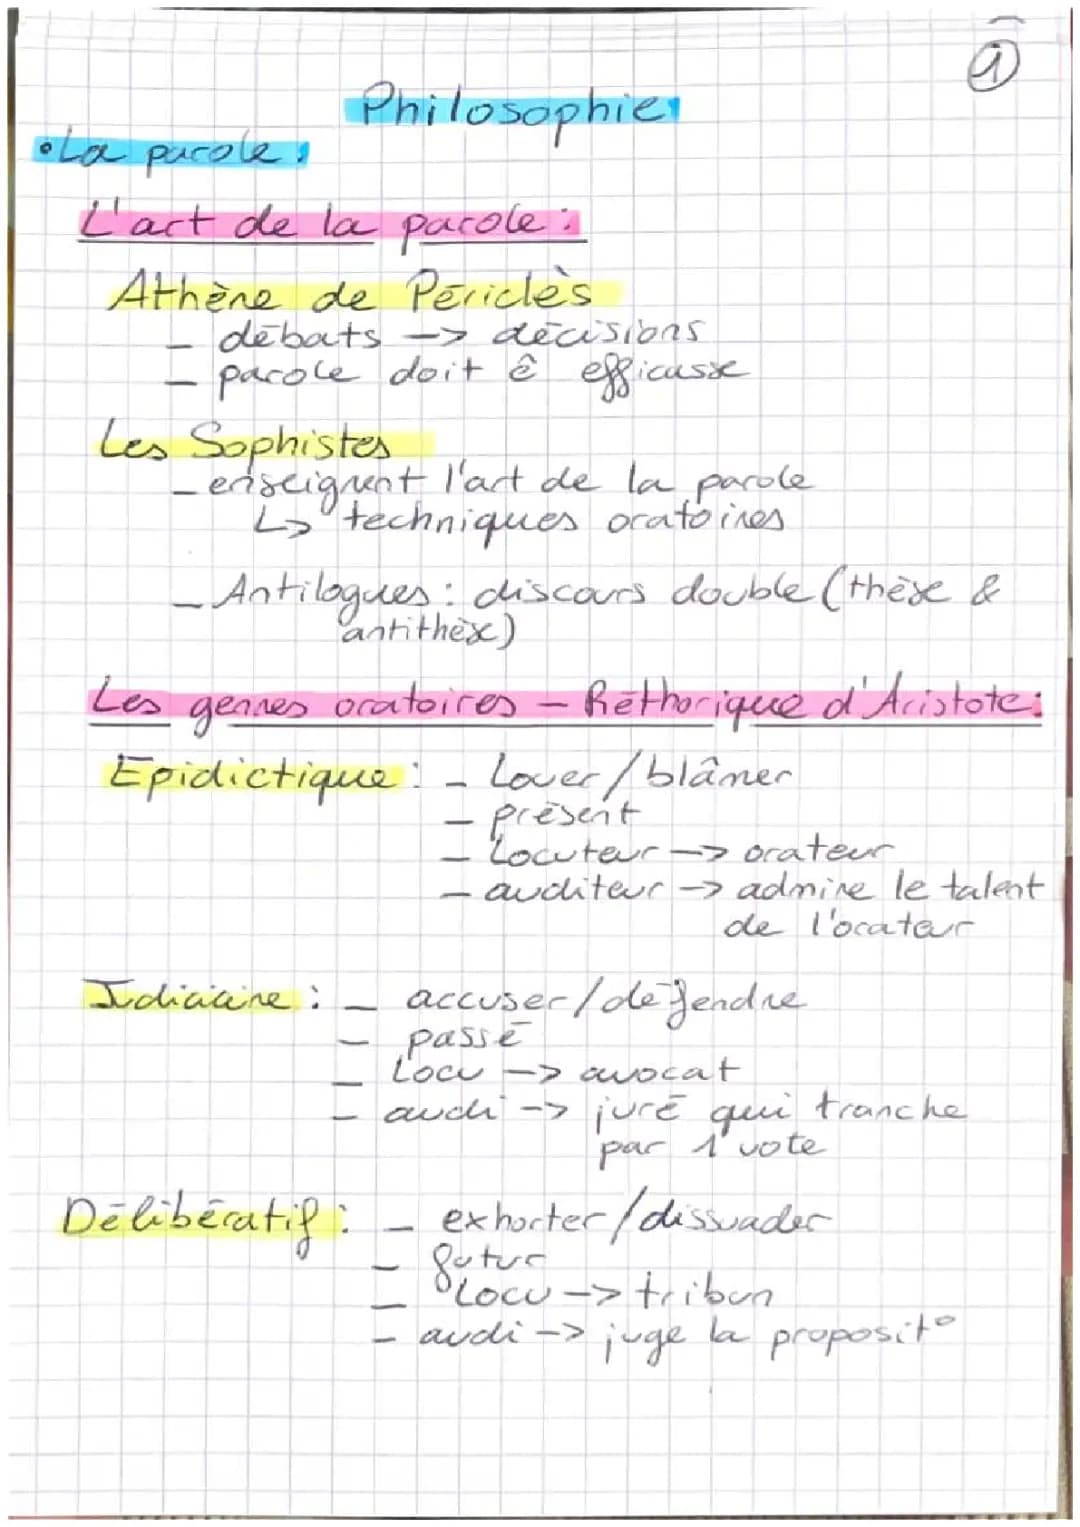 1
Philosophie:
• La parole:
L'art de la parole:
Athène de Périclès
- débats -> décisions
- parole doit ê efficasse
Les Sophistes
- enseignent l'art de la parole
↳ techniques oratoires
- Antilogues: discours double (thèse &
antithèse)
Les genres oratoires - Réthorique d'Aristote:
Épidictique: - Louer/blâmer
- présent
- Locuteur -> orateur
- auditeur -> admire le talent
de l'orateur
Judiciaire: - accuser/défendre
- passé
- Locu -> avocat
- audi -> juré qui tranche
par 1 vote
Délibératif: - exhorter/dissuader
- futur
- Locu -> tribun
- audi -> juge la proposit°